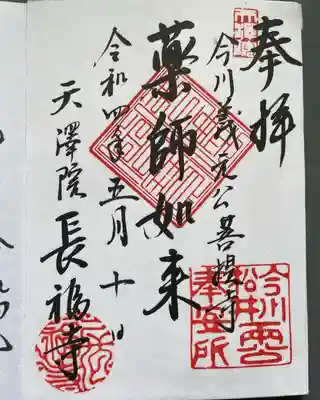 奉拝
今川義元公菩提寺
薬師如来
令和四年五月十日
天澤院長福寺
奉安所